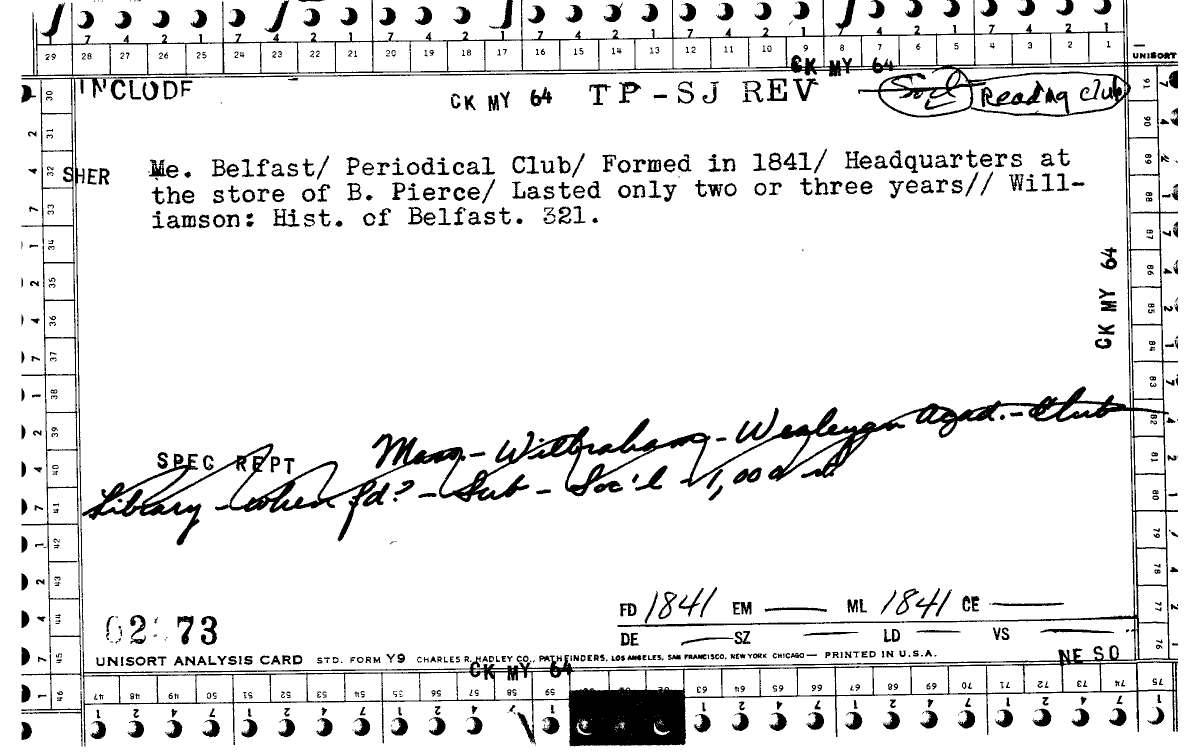 7 4 2 1 7 4 2 1 7 4 2 1 7 4 2 1 7 4 2 1 7 4 2 1 7 4 2 1
29 28 27 26 25 24 23 22 21 20 19 18 17 16 15 14 13 12 11 10 9 8 7 6 5 4 3 2 1 UNISORT
CK MY 64
INCLUDE CK MY 64 TP-SJ REV Soc'l Reading club
SHER Me. Belfast/ Periodical Club/ Formed in 1841/ Headquarters at
the store of B. Pierce/ Lasted only two or three years// Will-
iamson: Hist. of Belfast. 321.
CK MY 64
Mass.-Wilbraham-Wesleyan Acad.-Club
SPEC REPT
Library-when fd?-Sub-Soc'l-1,000 v.
FD 1841 EM — ML 1841 CE —
DE — SZ — LD — VS —
73
UNISORT ANALYSIS CARD STD. FORM Y9 CHARLES R. HADLEY CO., PATHFINDERS, LOS ANGELES, SAN FRANCISCO, NEW YORK CHICAGO — PRINTED IN U.S.A.
NE SO
CK MY 64
30 31 32 33 34 35 36 37 38 39 40 41 42 43 44 45 46
91 90 89 88 87 86 85 84 83 82 81 80 79 78 77 76
47 48 49 50 51 52 53 54 55 56 57 58 59 63 64 65 66 67 68 69 70 71 72 73 74 75